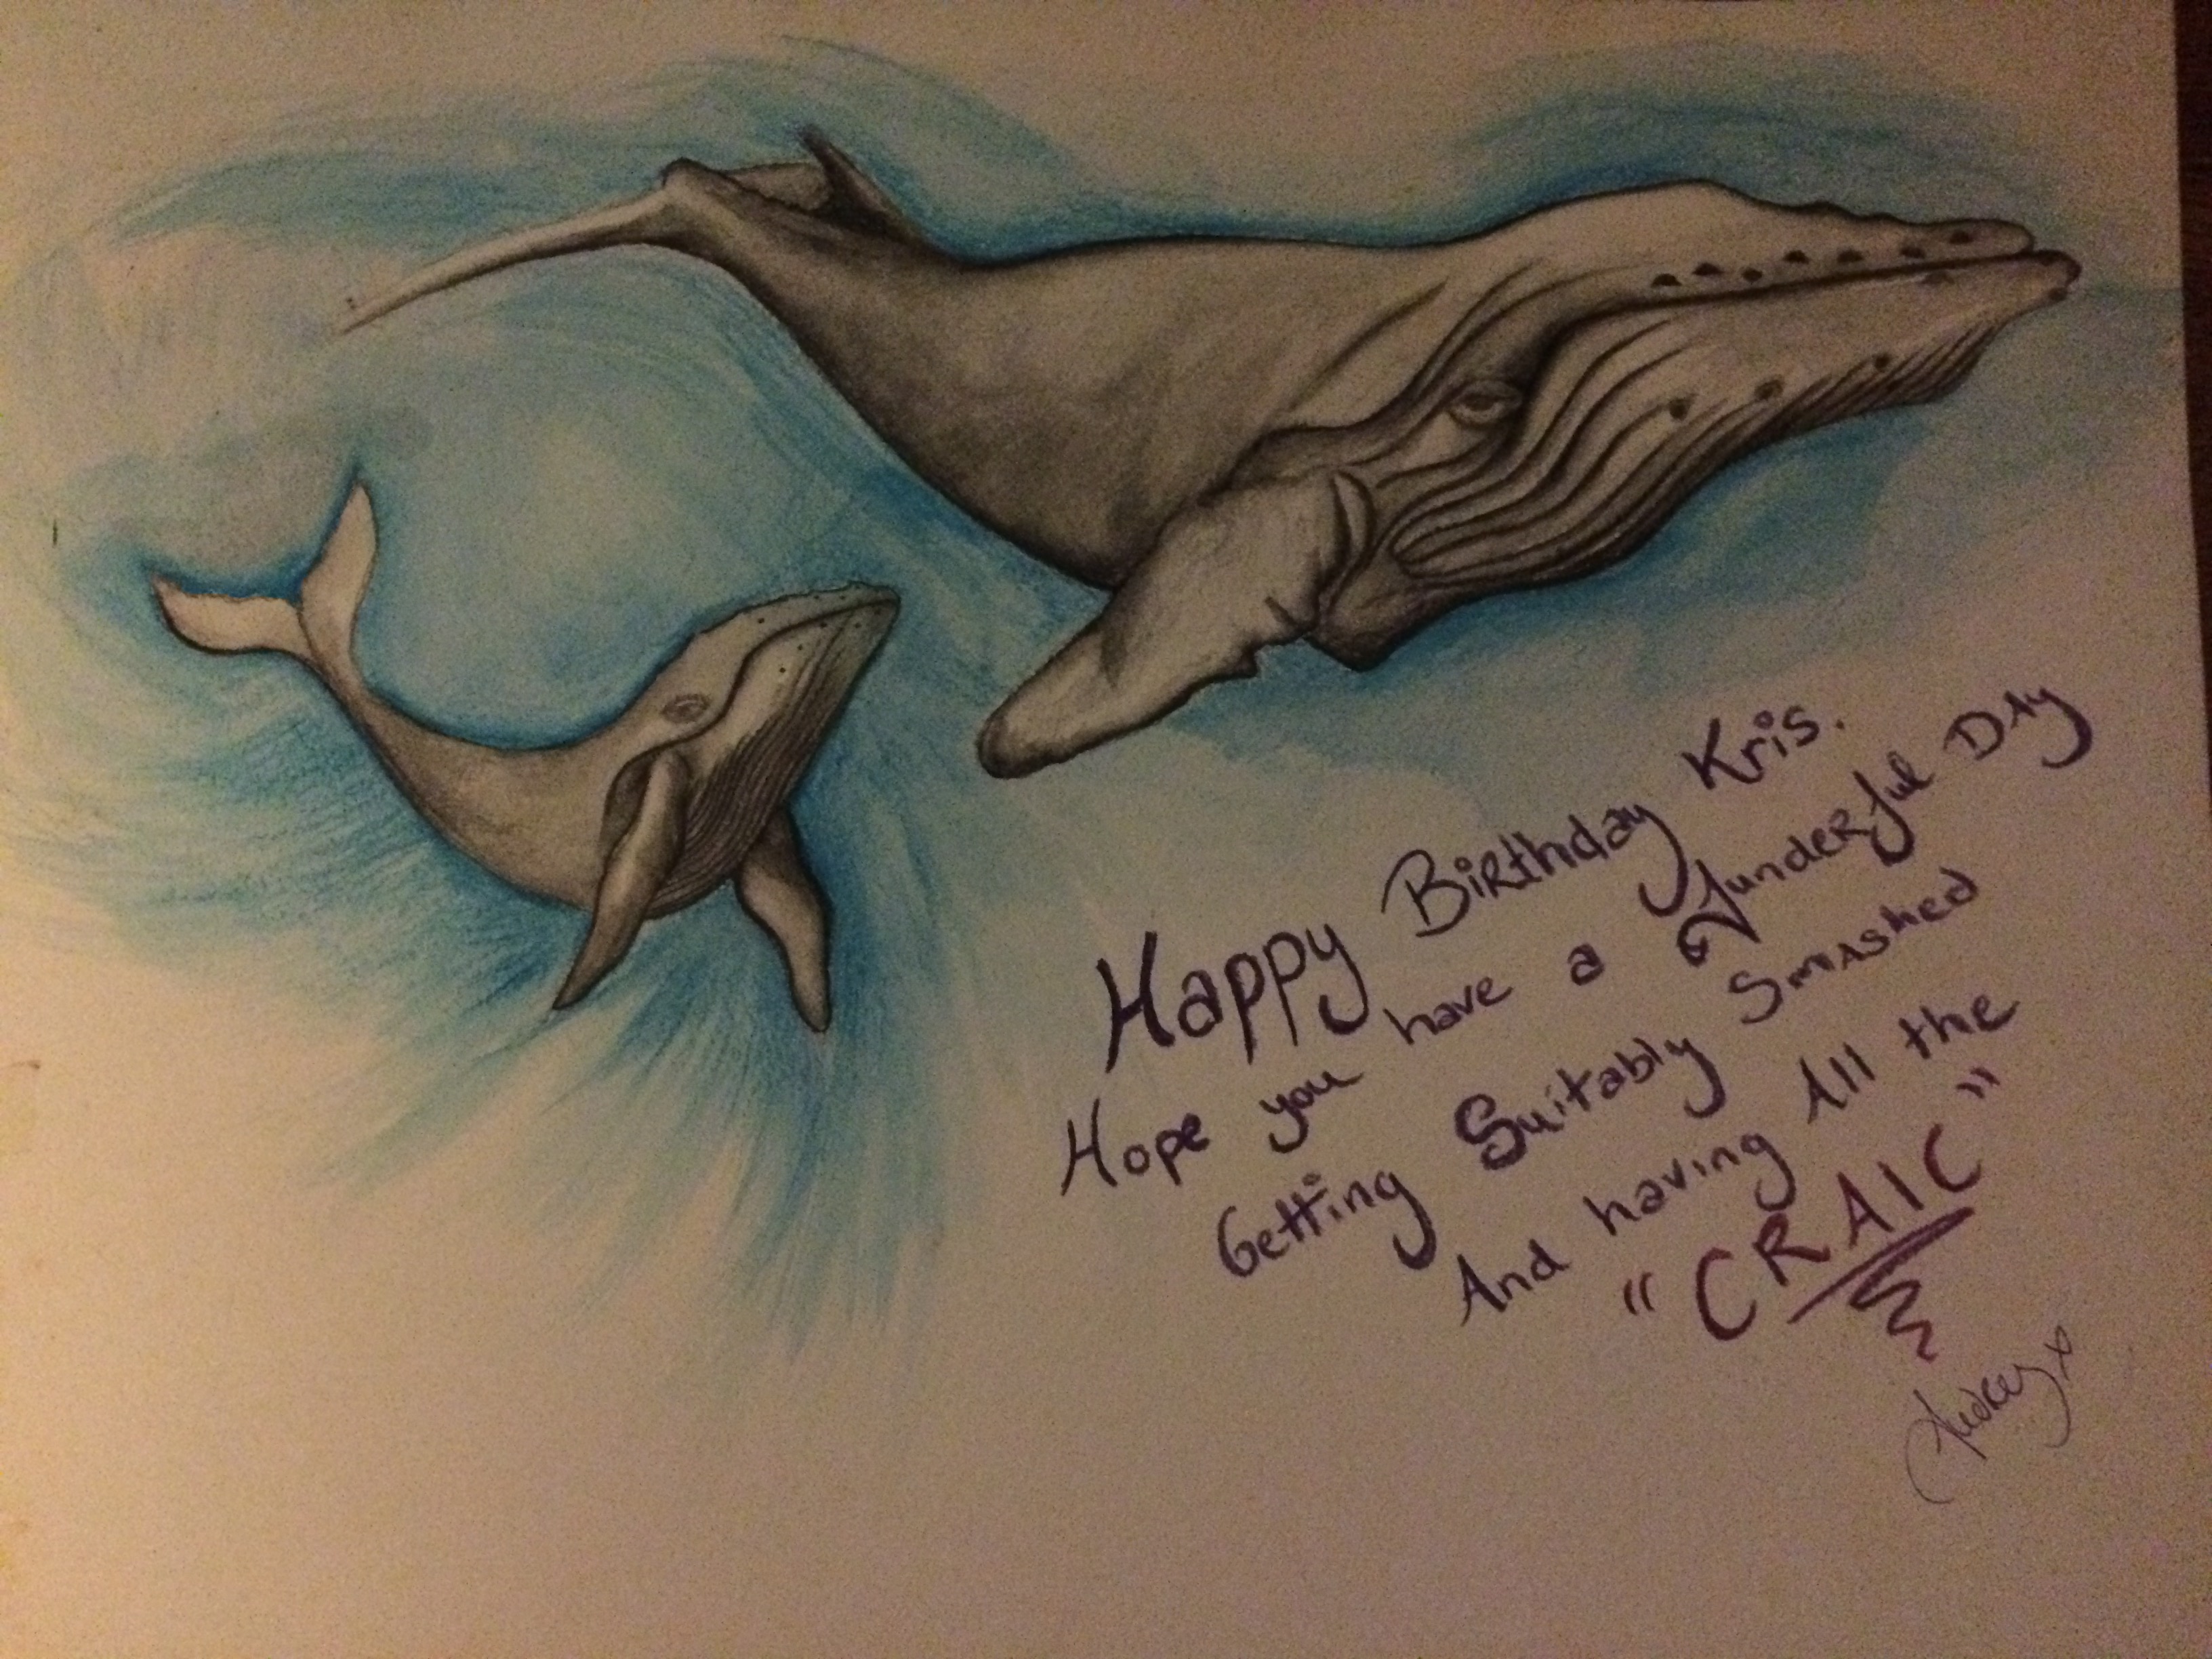 Happy Birthday Kris.
Hope you have a funderful DAy
Getting Suitably Smashed
And having All the
"CRAIC"
Audrey x